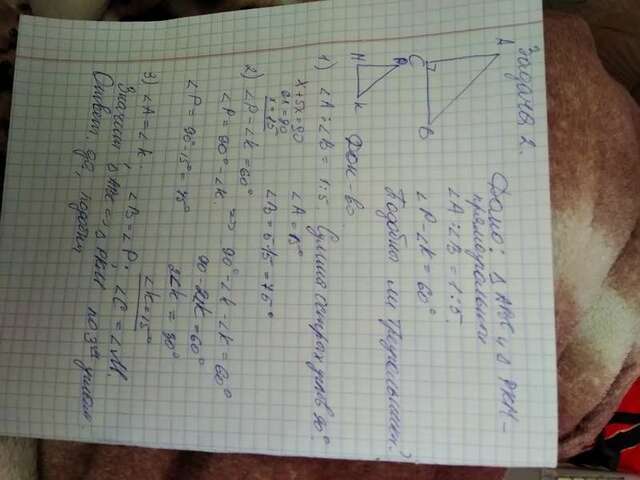 Задача 2.
A
C
B
Дано: Δ ABC и Δ PKM -
прямоугольники
∠A:∠B = 1:5.
∠P-∠K = 60°
Подобны ли треугольники?
P
K
Док-во.
1) ∠A:∠B = 1:5 Сумма острых углов 90°.
x+5x=90
6x=90
x=15
∠A = 15°
∠B = 5·15 = 75°
2) ∠P-∠K = 60°
∠P = 90°-∠K. => 90°-∠K-∠K = 60°
90-2∠K = 60°
2∠K = 30°
∠P = 90°-15° = 75°
∠K = 15°
3) ∠A = ∠K, ∠B = ∠P; ∠C = ∠M.
Значит Δ ABC ∞ Δ PKM по 3м углам.
Ответ: да, подобны